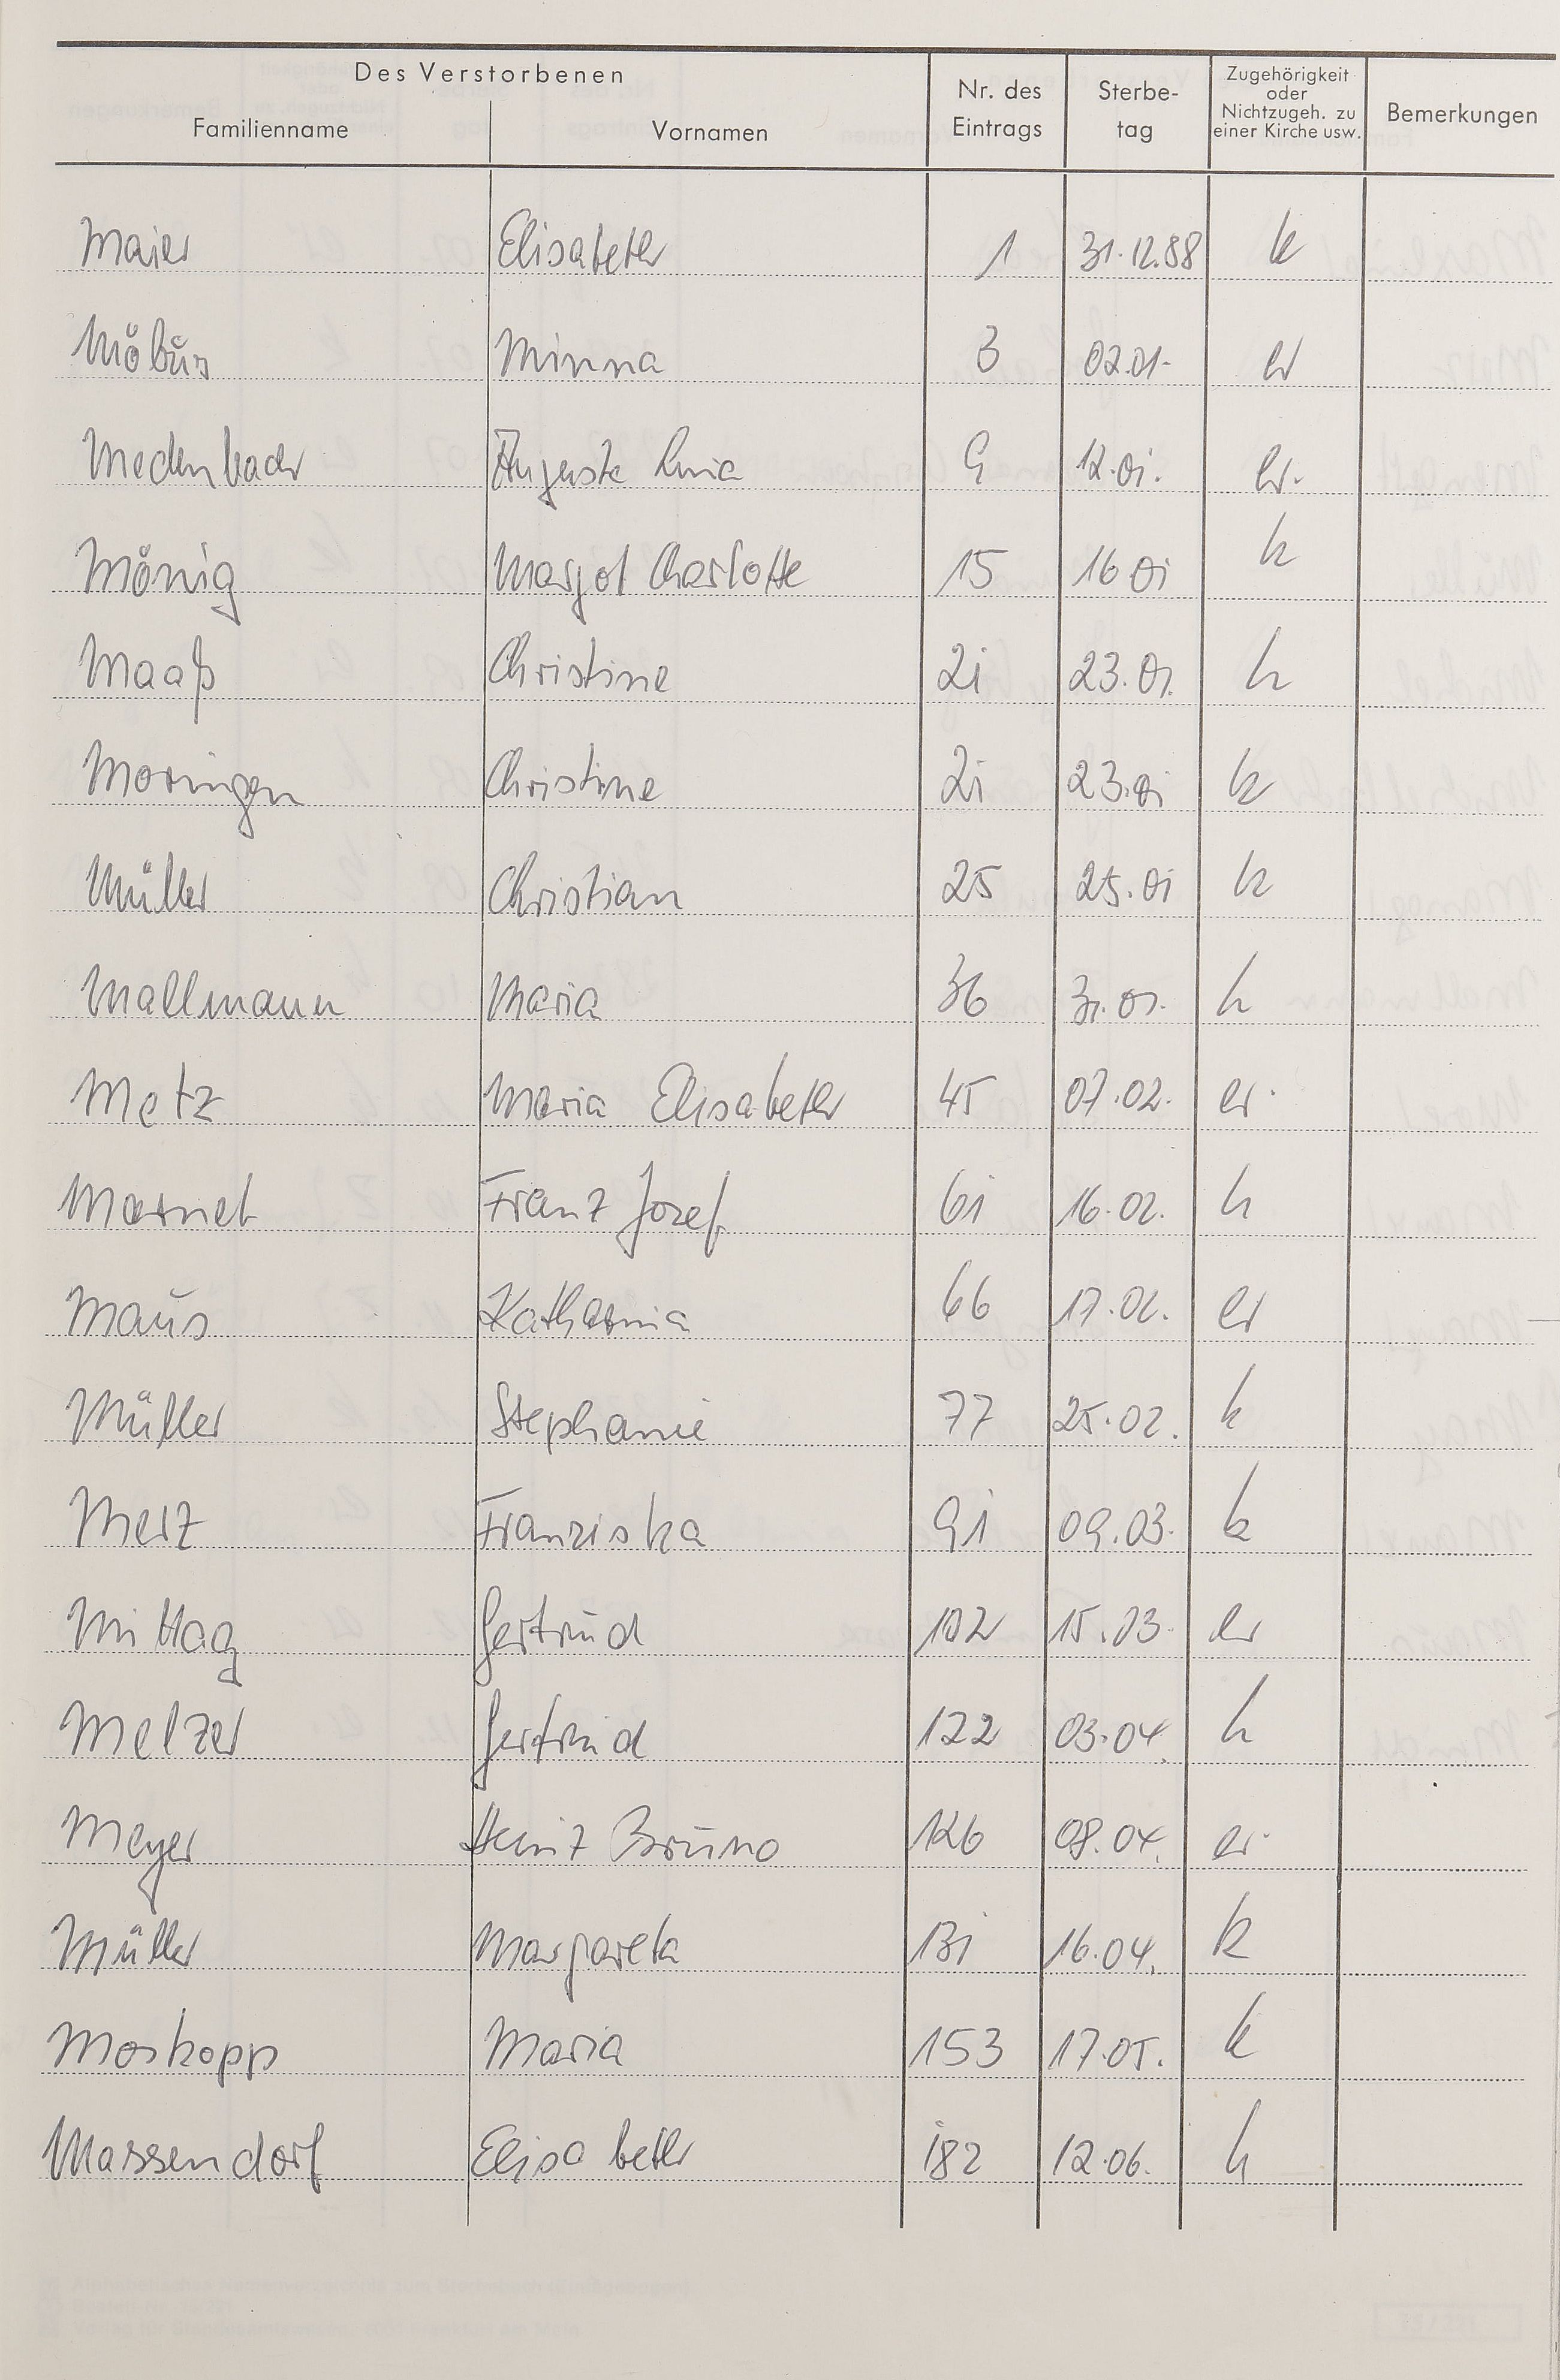 Des Verstorbenen
Familienname Vornamen Nr. des Eintrags Sterbe-tag Zugehörigkeit oder Nichtzugeh. zu einer Kirche usw. Bemerkungen
Maier Elisabeth 1 31.12.88 k
Möbus Minna 3 02.01. ev
Medenbach Auguste Luise 9 12.01. ev.
Mönig Margot Charlotte 15 16.01 k
Maaß Christine 21 23.01. k
Moringen Christine 21 23.01 k
Müller Christian 25 25.01 k
Mallmann Maria 36 31.01. k
Metz Maria Elisabeth 45 07.02. ev.
Marnet Franz Josef 61 16.02. k
Maus Katharina 66 17.02. ev
Müller Stephanie 77 25.02. k
Merz Franziska 91 09.03. k
Mittag Gertrud 102 15.03. ev
Melzer Gertrud 122 03.04. k
Meyer Heinz Bruno 126 08.04. ev.
Müller Margareta 131 16.04. k
Moskopp Maria 153 17.05. k
Massendorf Elisabeth 182 12.06. k